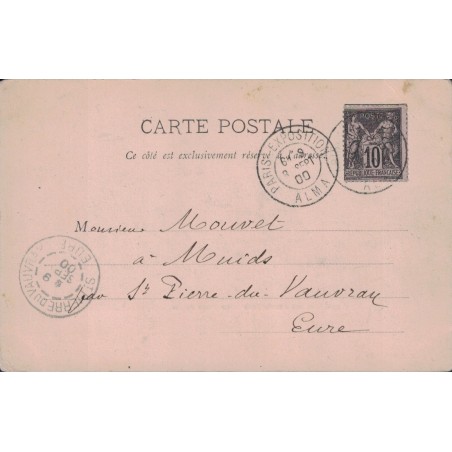 CARTE POSTALE
Ce côté est exclusivement réservé à l'adresse.
POSTE
10
REPUBLIQUE FRANÇAISE
PARIS-EXPOSITION
SEPT
00
ALMA
Monsieur Mouvet
à Muids
par St Pierre-du-Vauvray
Eure
EURE
SEPT
00